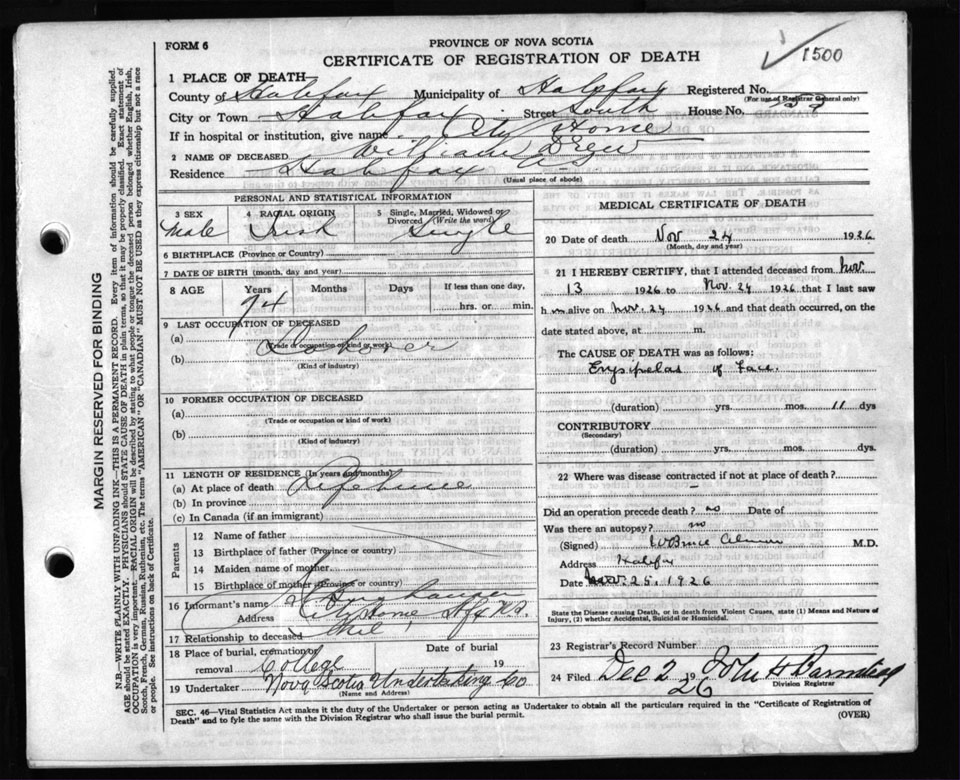 FORM 6
PROVINCE OF NOVA SCOTIA
CERTIFICATE OF REGISTRATION OF DEATH
1500
1 PLACE OF DEATH
County of Halifax Municipality of Halifax Registered No.
(For use of Registrar General only)
City or Town Halifax Street South House No.
If in hospital or institution, give name City Home
2 NAME OF DECEASED William Drew
Residence Halifax
(Usual place of abode)
PERSONAL AND STATISTICAL INFORMATION
3 SEX Male
4 RACIAL ORIGIN Irish
5 Single, Married, Widowed or Divorced (Write the word) Single
6 BIRTHPLACE (Province or Country)
7 DATE OF BIRTH (month, day and year)
8 AGE Years 74 Months Days If less than one day, hrs. or min.
9 LAST OCCUPATION OF DECEASED
(a) Laborer
(Trade or occupation kind or work)
(b)
(Kind of industry)
10 FORMER OCCUPATION OF DECEASED
(a)
(Trade or occupation or kind of work)
(b)
(Kind of industry)
11 LENGTH OF RESIDENCE (In years and months)
(a) At place of death Lifetime
(b) In province
(c) In Canada (if an immigrant)
Parents
12 Name of father
13 Birthplace of father (Province or country)
14 Maiden name of mother
15 Birthplace of mother (Province or country)
16 Informant's name
Address City Home Hfx N.S.
17 Relationship to deceased
18 Place of burial, cremation or removal College
Date of burial 19
19 Undertaker Nova Scotia Undertaking Co
(Name and Address)
MEDICAL CERTIFICATE OF DEATH
20 Date of death Nov 24 1926
(Month, day and year)
21 I HEREBY CERTIFY, that I attended deceased from Nov.
13 1926 to Nov. 24 1926 that I last saw
him alive on Nov. 24 1926 and that death occurred, on the
date stated above, at m.
The CAUSE OF DEATH was as follows:
Erysipelas of Face.
(duration) yrs. mos. 11 dys
CONTRIBUTORY
(Secondary)
(duration) yrs. mos. dys.
22 Where was disease contracted if not at place of death?
-
Did an operation precede death? no Date of
Was there an autopsy? no
(Signed) W Bruce Almon M.D.
Address Halifax
Date Nov. 25. 1926
State the Disease causing Death, or in death from Violent Causes, state (1) Means and Nature of
Injury, (2) whether Accidental, Suicidal or Homicidal.
23 Registrar's Record Number
24 Filed Dec 2 1926
Division Registrar
SEC. 46—Vital Statistics Act makes it the duty of the Undertaker or person acting as Undertaker to obtain all the particulars required in the "Certificate of Registration of
Death" and to fyle the same with the Division Registrar who shall issue the burial permit.
(OVER)
MARGIN RESERVED FOR BINDING
N.B.—WRITE PLAINLY WITH UNFADING INK—THIS IS A PERMANENT RECORD. Every item of information should be carefully supplied.
AGE should be stated EXACTLY. PHYSICIANS should STATE CAUSE OF DEATH in plain terms, so that it may be properly classified. Exact statement of
OCCUPATION is very important. RACIAL ORIGIN will be described by stating to what people or tongue the deceased person belonged whether English, Irish,
Scotch, French, German, Russian, Ruthenian, etc. The terms "AMERICAN" OR "CANADIAN" MUST NOT BE USED as they express citizenship but not a race
or people. See instructions on back of Certificate.